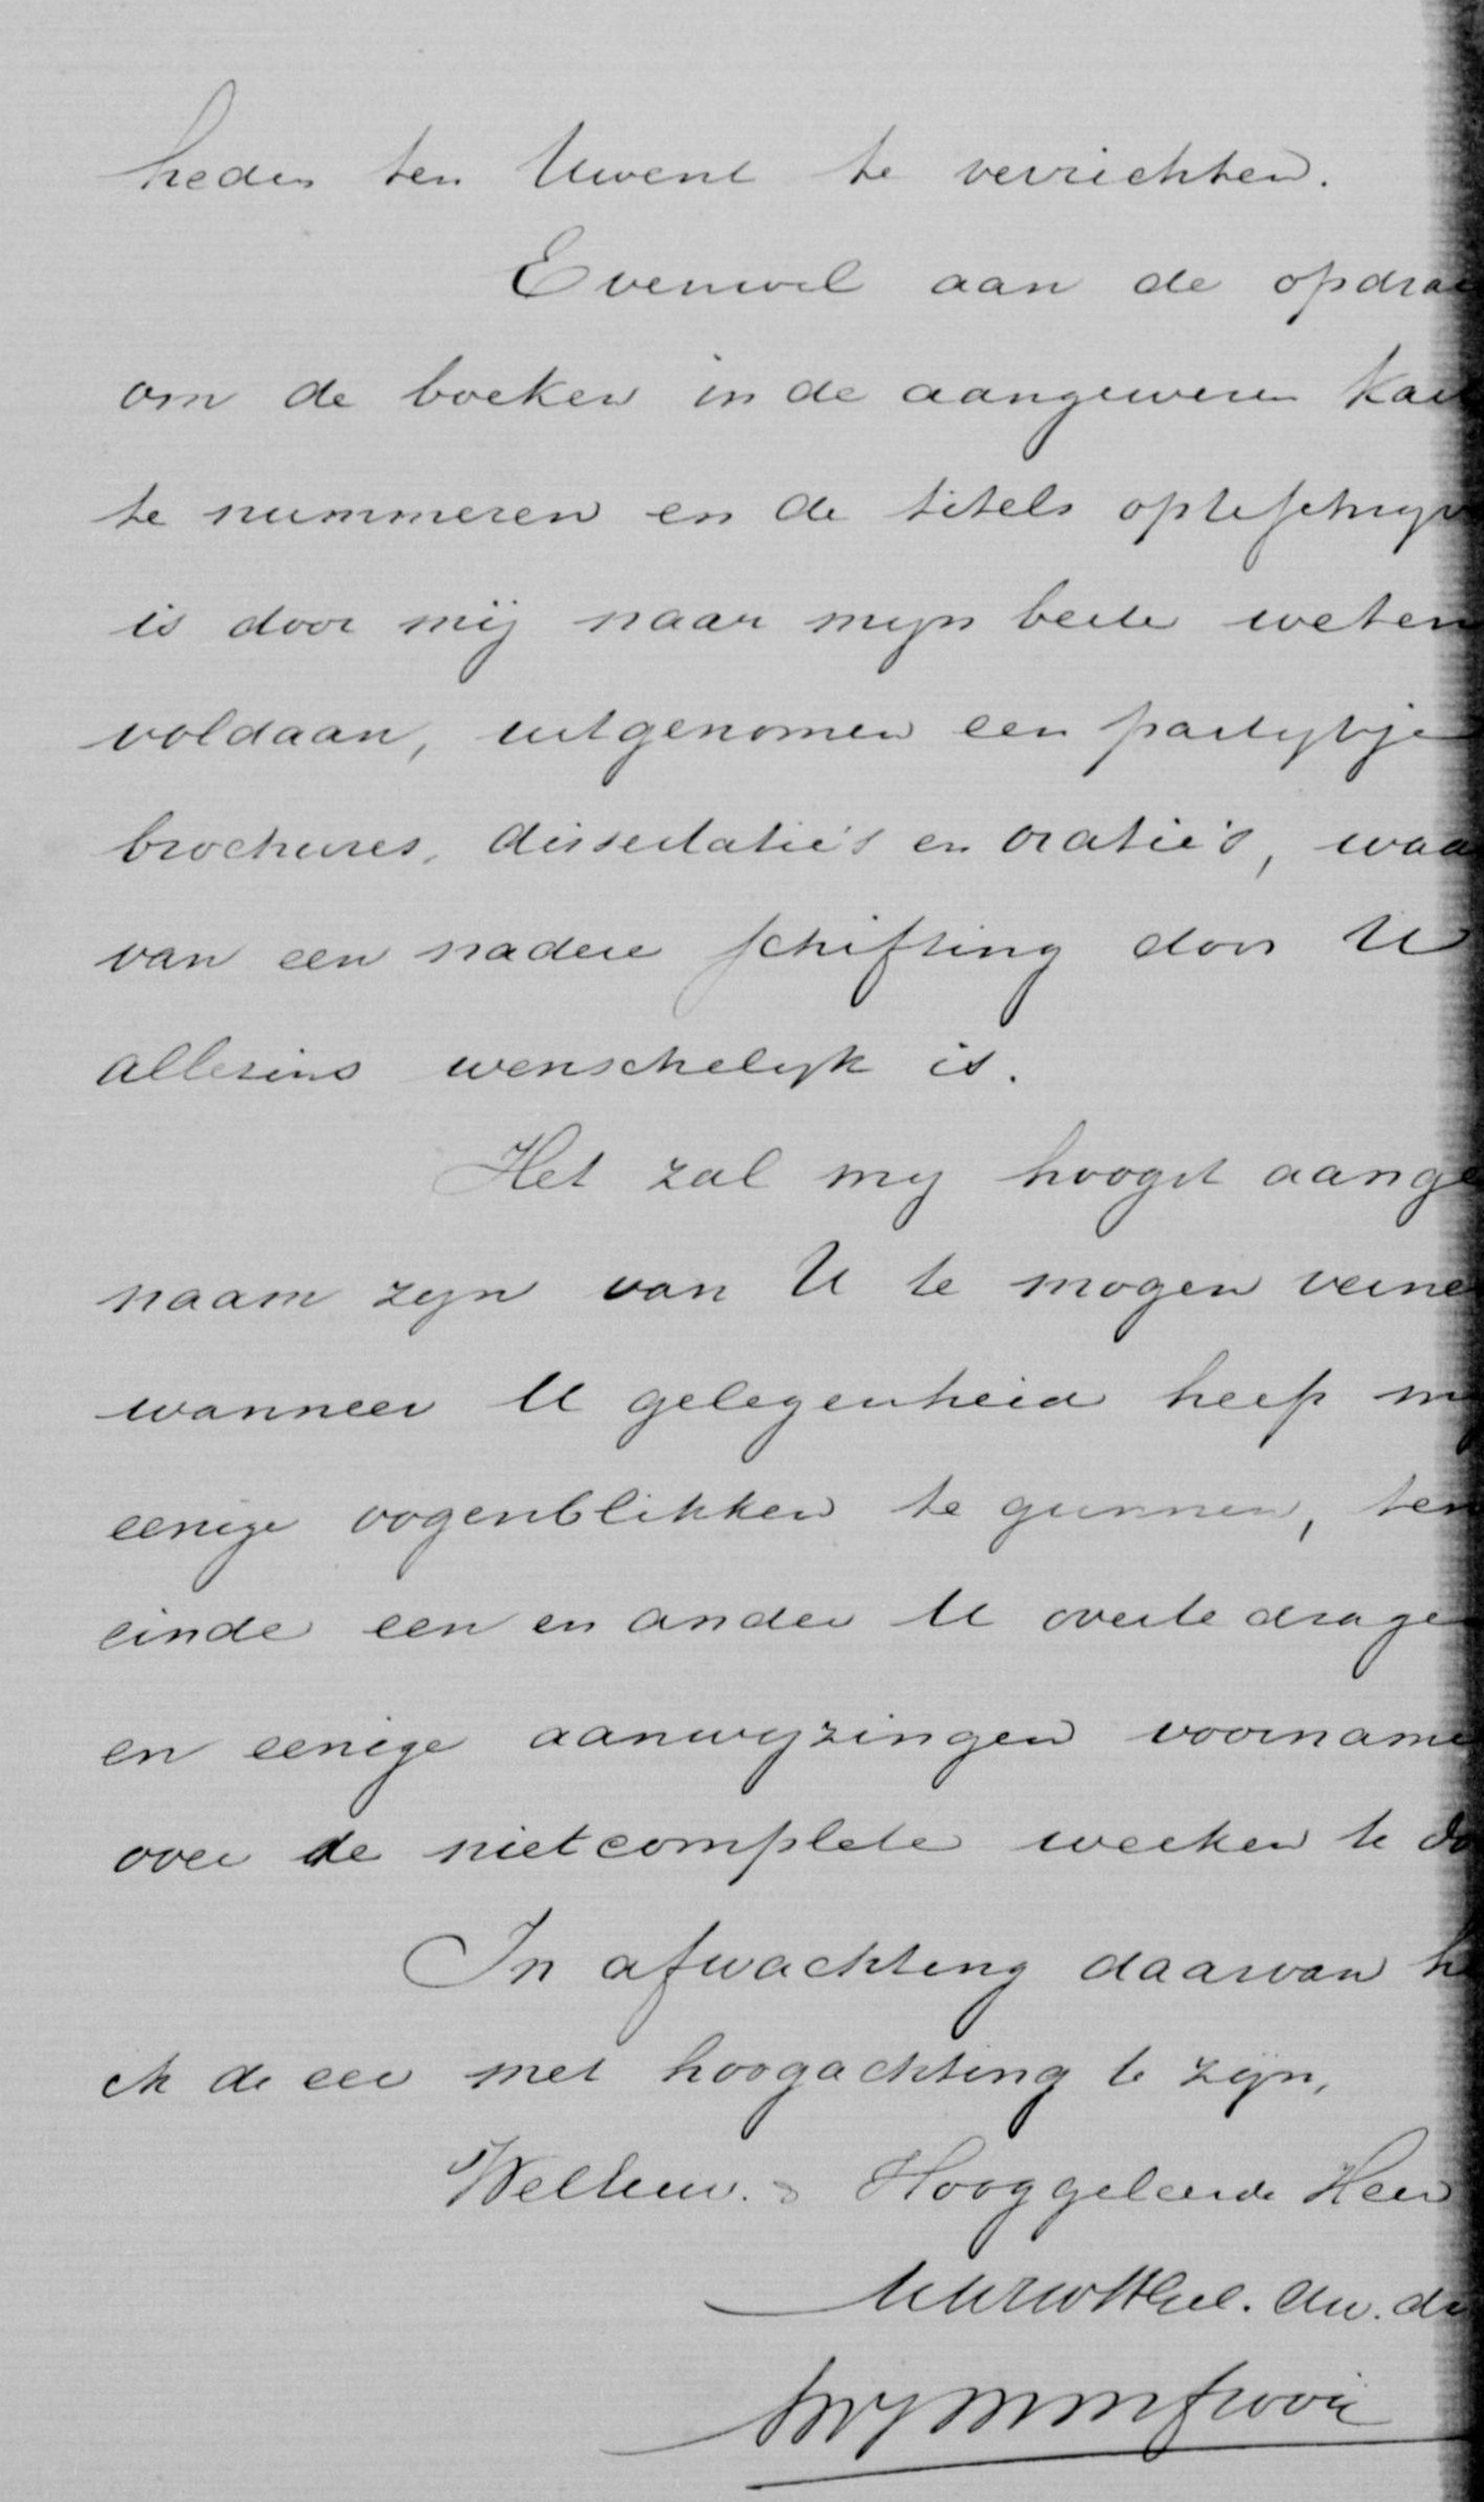 heden ten Uwent te verrichten.
Evenwel aan de opdrac
om de boeken in de aangewezen kas
te nummeren en de titels opteschrijv
is door mij naar mijn beste weten
voldaan, uitgenomen een partijtje
brochures, dissertatie's en oratie's, waa
van een nadere schifting door U
allesins wenschelijk is.
Het zal mij hoogst aange
naam zijn van U te mogen verne
wanneer U gelegenheid heeft m
eenige oogenblikken te gunnen, ten
einde een en ander U overtedrage
en eenige aanwijzingen voorname
over de nietcomplete werken te do
In afwachting daarvan h
ik de eer met hoogachting te zijn,
WelEerw. & Hooggeleerde Heer
UwZWelEel. dw. di